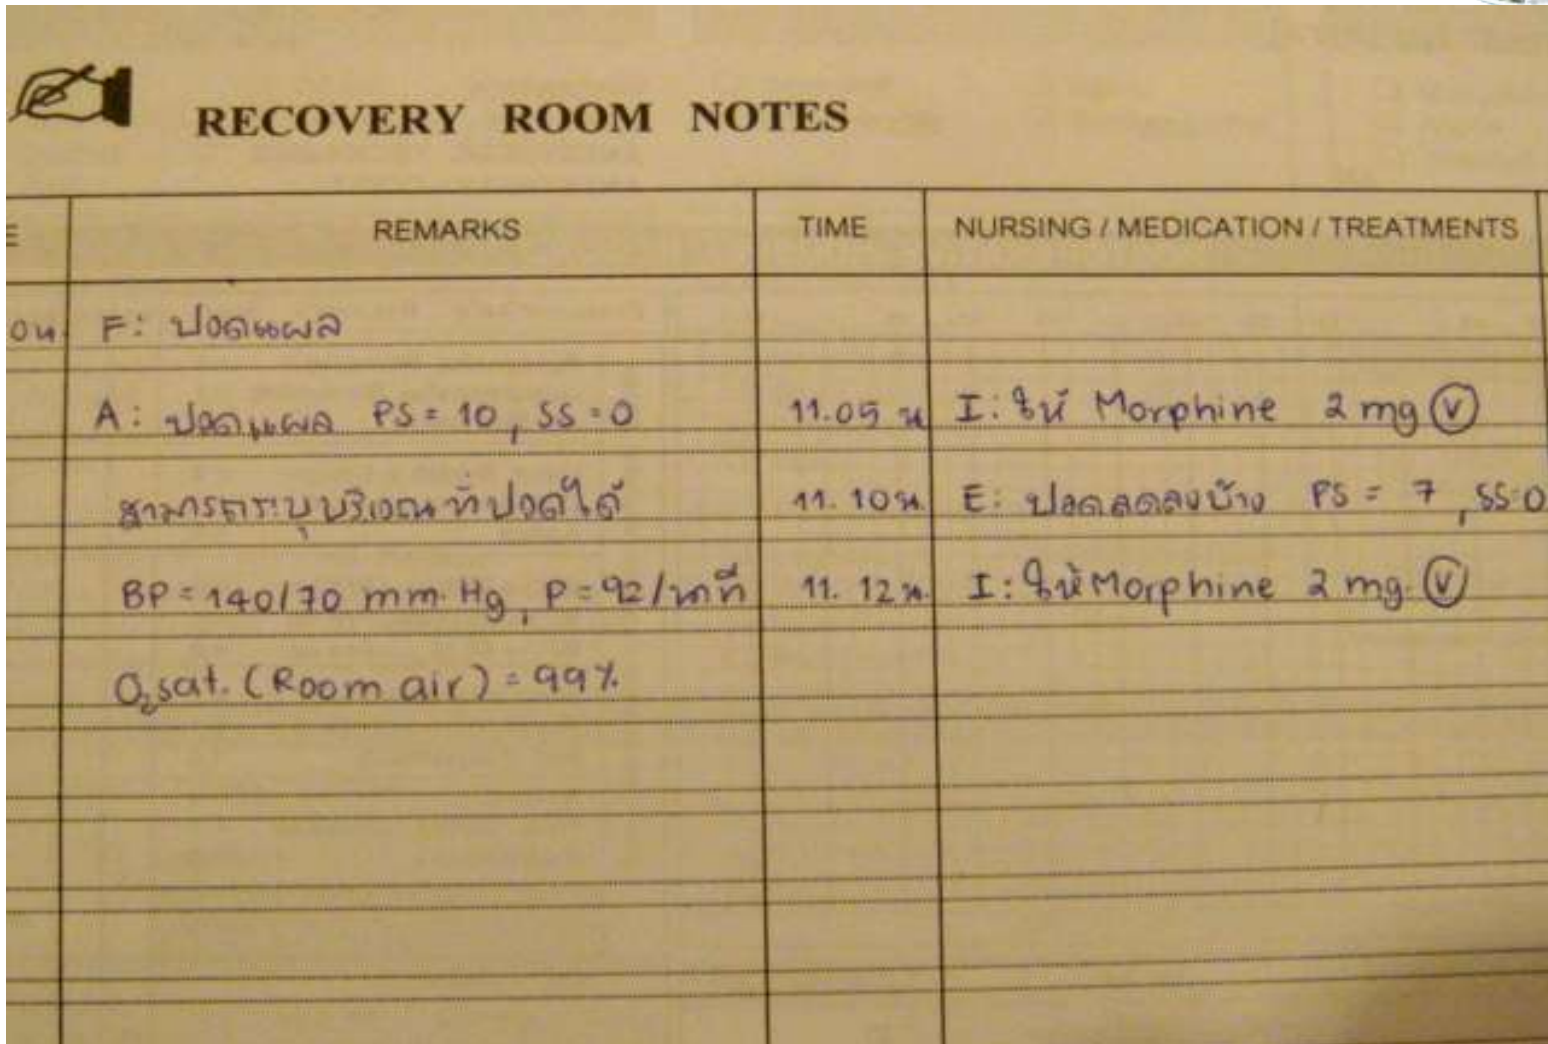 RECOVERY ROOM NOTES
E REMARKS TIME NURSING / MEDICATION / TREATMENTS
0น. F: ปวดแผล
A: ปวดแผล PS = 10, SS = 0 11.05 น I: ให้ Morphine 2 mg V
สามารถระบุบริเวณที่ปวดได้ 11.10น. E: ปวดลดลงบ้าง PS = 7, SS=0
BP = 140/70 mm.Hg, P = 92/นาที 11.12น. I: ให้ Morphine 2 mg. V
O₂sat. (Room air) = 99%